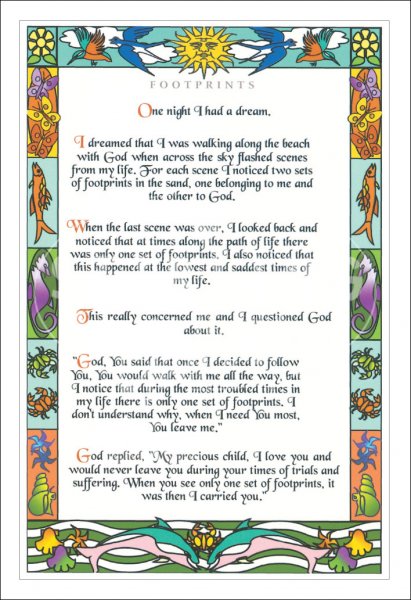 FOOTPRINTS
One night I had a dream.
I dreamed that I was walking along the beach
with God when across the sky flashed scenes
from my life. For each scene I noticed two sets
of footprints in the sand, one belonging to me and
the other to God.
When the last scene was over, I looked back and
noticed that at times along the path of life there
was only one set of footprints. I also noticed that
this happened at the lowest and saddest times of
my life.
This really concerned me and I questioned God
about it.
"God, You said that once I decided to follow
You, You would walk with me all the way, but
I notice that during the most troubled times in
my life there is only one set of footprints. I
don't understand why, when I need You most,
You leave me."
God replied, "My precious child, I love you and
would never leave you during your times of trials and
suffering. When you see only one set of footprints, it
was then I carried you."